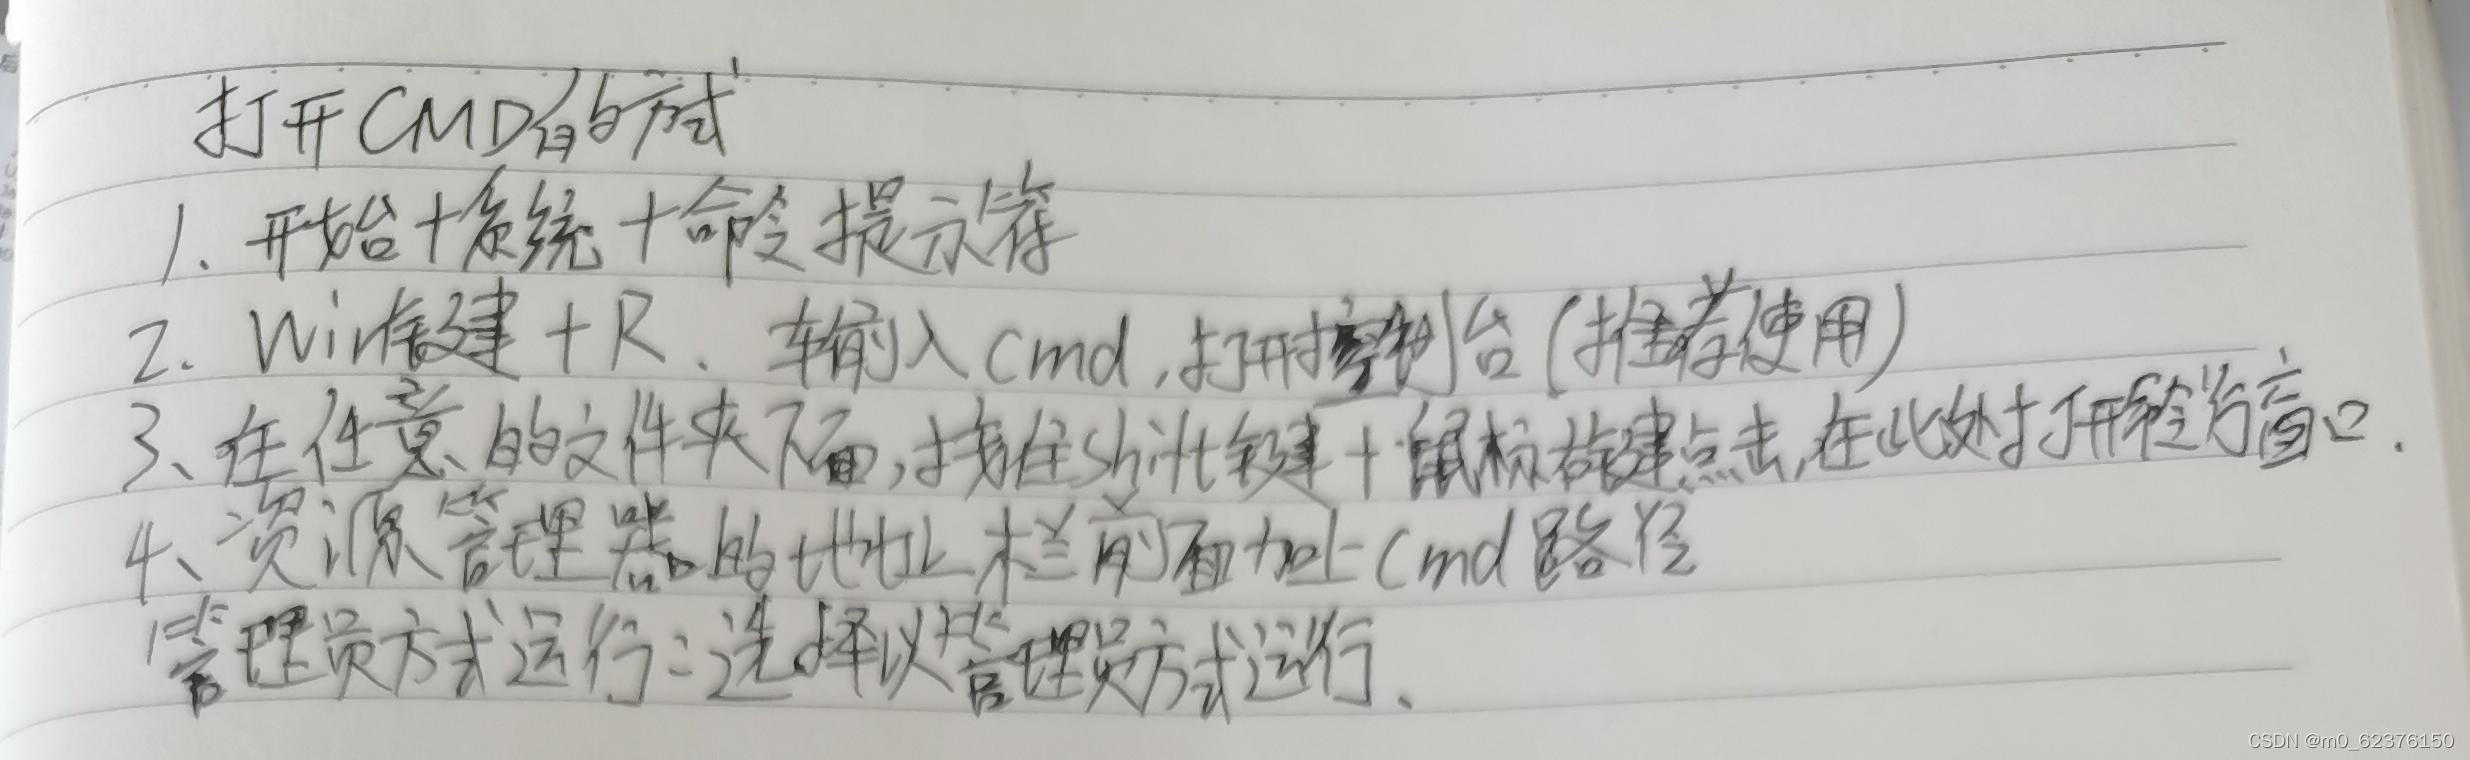 打开CMD的方式
1. 开始+系统+命令提示符
2. Win键+R. 输入cmd,打开控制台(推荐使用)
3、在任意的文件夹下面,按住shift键+鼠标右键点击,在此处打开命令行窗口.
4、资源管理器的地址栏前面加上cmd路径
管理员方式运行:选择以管理员方式运行.
CSDN @m0_62376150